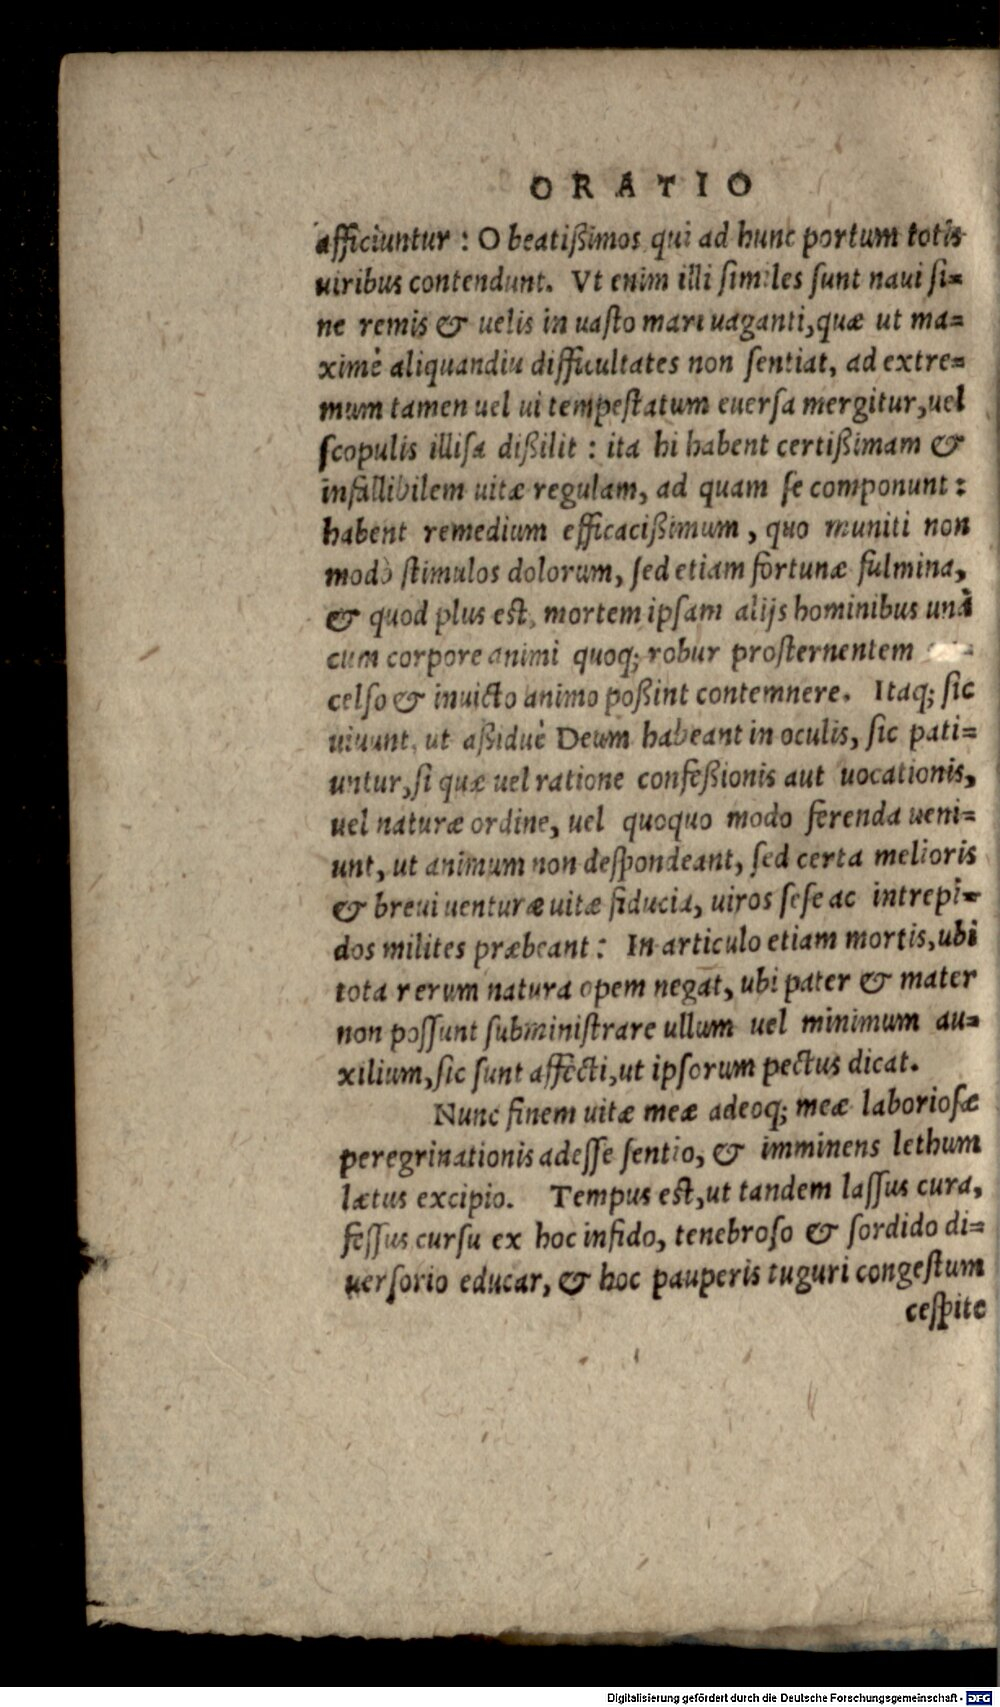 ORATIO
afficiuntur : O beatißimos qui ad hunc portum totis
uiribus contendunt. Vt enim illi similes sunt naui si=
ne remis & uelis in uasto mari uaganti, quæ ut ma=
ximè aliquandiu difficultates non sentiat, ad extre=
mum tamen uel ui tempestatum euersa mergitur, uel
scopulis illisa dißilit : ita hi habent certißimam &
infallibilem uitæ regulam, ad quam se componunt :
habent remedium efficacißimum, quo muniti non
modò stimulos dolorum, sed etiam fortunæ fulmina,
& quod plus est, mortem ipsam alijs hominibus unà
cum corpore animi quoq; robur prosternentem
celso & inuicto animo poßint contemnere. Itaq; sic
uiuunt, ut aßiduè Deum habeant in oculis, sic pati=
untur, si quæ uel ratione confeßionis aut uocationis,
uel naturæ ordine, uel quoquo modo ferenda ueni=
unt, ut animum non despondeant, sed certa melioris
& breui uenturæ uitæ fiducia, uiros sese ac intrepi=
dos milites præbeant : In articulo etiam mortis, ubi
tota rerum natura opem negat, ubi pater & mater
non possunt subministrare ullum uel minimum au=
xilium, sic sunt affecti, ut ipsorum pectus dicat.
Nunc finem uitæ meæ adeoq; meæ laboriosæ
peregrinationis adesse sentio, & imminens lethum
lætus excipio. Tempus est, ut tandem lassus cura,
fessus cursu ex hoc infido, tenebroso & sordido di=
uersorio educar, & hoc pauperis tuguri congestum
cespite
Digitalisierung gefördert durch die Deutsche Forschungsgemeinschaft - DFG